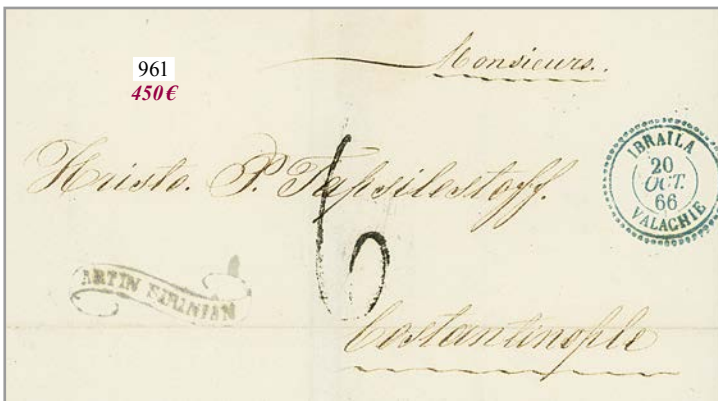 961
450 €
Monsieurs.
Hristo. P.
IBRAILA
20
OCT.
66
VALACHIE
6
ARTIN
Costantinople